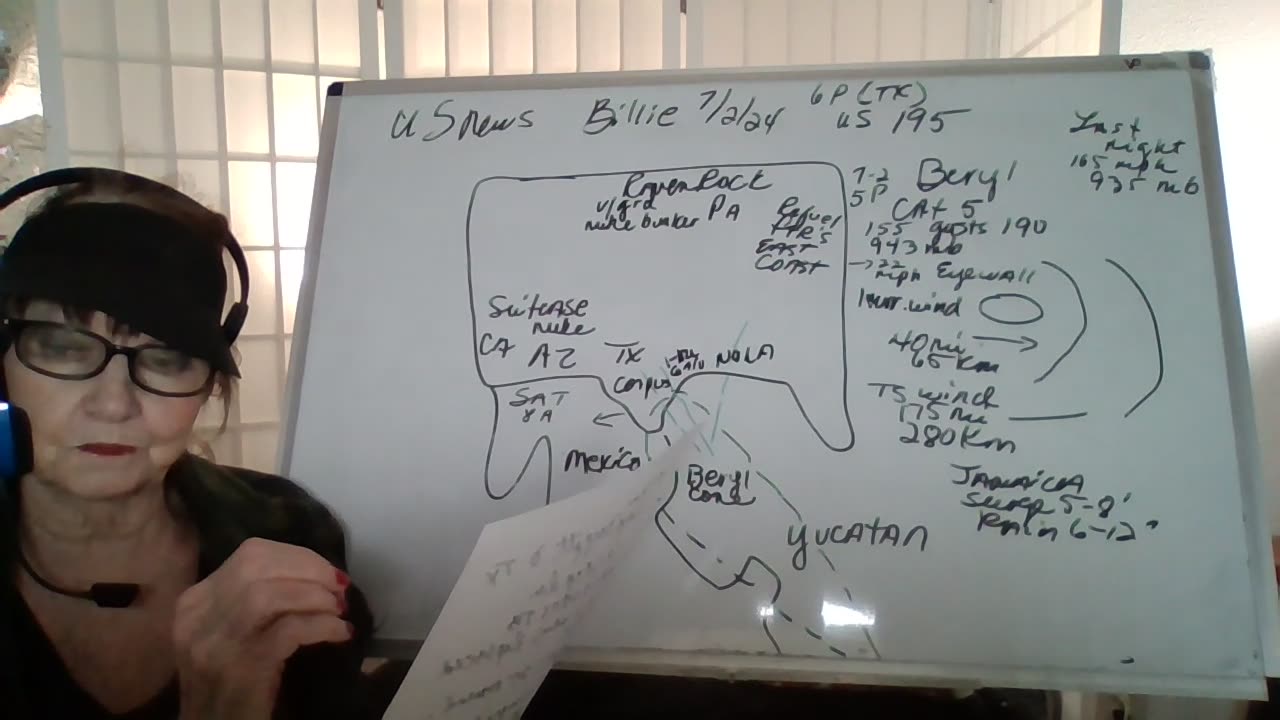 US news Billie 7/2/24 6P (TX)
US 195
Last
night
165 mph
935 mb
Raven Rock
u/grd
nuke bunker PA
EAST
COAST
7-2
5P
Beryl
CAT 5
155 gusts 190
943 mb
→ 22
mph Eyewall
Hurr. wind
40 mi
65 Km
TS wind
175 mi
280 Km
Suitcase
nuke
CA AZ TX NOLA
Corpus
SAT
8A
Mexico
Beryl
Cone
YUCATAN
JAMAICA
Surge 5-8'
Rain 6-12"